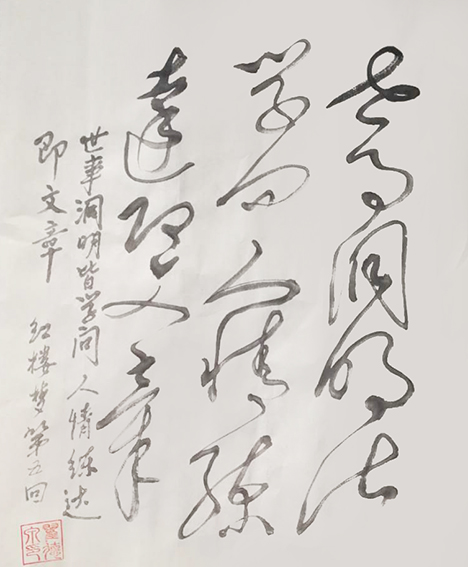 世事洞明皆
学问人情练
達即文章
世事洞明皆学问人情练达
即文章 红楼梦第五回